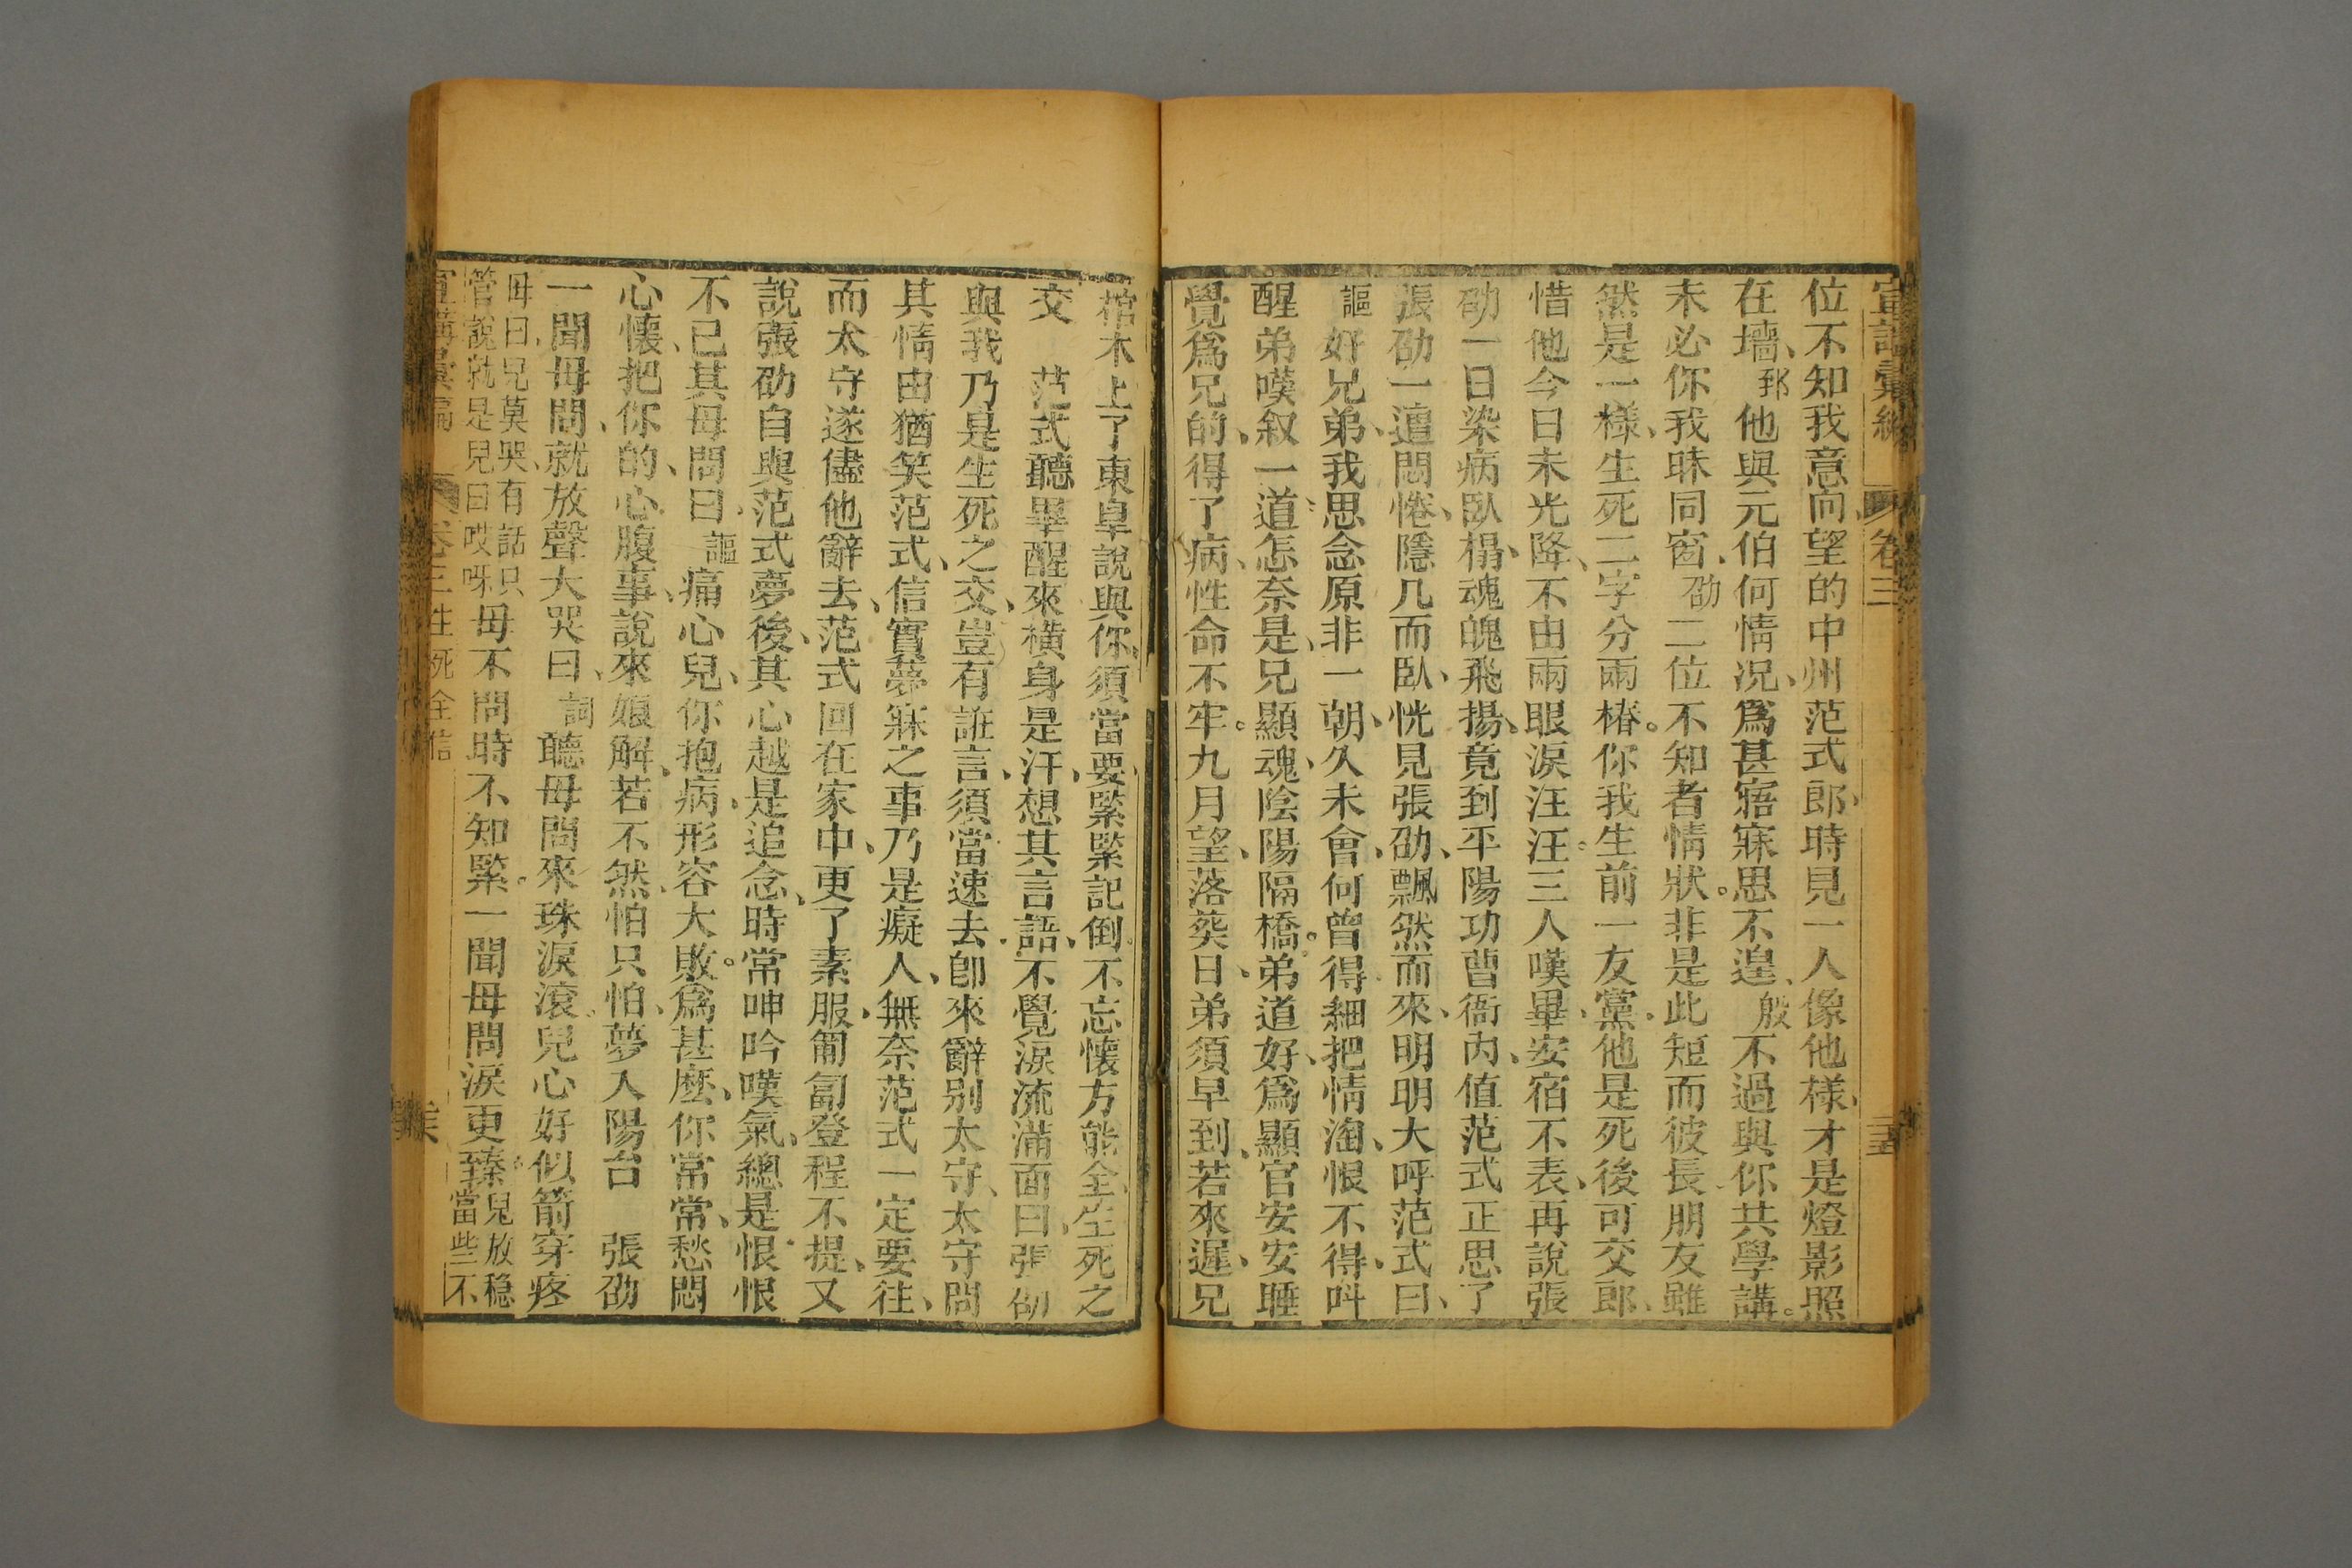 宣講彙編 卷三 二五
位不知我意向望的中州范式郎、時見一人像他樣、才是燈影照
在墻、郅他與元伯何情况、爲甚寤寐思不遑、殷不過與你共學講。
未必你我昧同窗、劭二位不知者情狀。非是此短而彼長朋友雖
然是一樣、生死二字分兩椿。你我生前一友黨他是死後可交郎、
惜他今日未光降、不由兩眼淚汪汪三人嘆畢、安宿不表、再說張
劭一日染病臥榻、魂魄飛揚、竟到平陽功曹衙內、值范式正思了
張劭一遭悶倦、隱几而臥、恍見張劭、飄然而來、明明大呼范式曰、
謳好兄弟、我思念原非一朝、久未會、何曾得細把情淘、恨不得、呌
醒弟嘆叙一道怎奈是、兄顯魂、陰陽隔橋。弟道好、爲顯官安安睡
覺爲兄的、得了病、性命不牢。九月望、落葬日、弟須早到、若來遲、兄
棺木上了東臯說與你、須當要、緊緊記倒、不忘懷方能全生死之
交 范式聽畢醒來橫身是汗、想其言語、不覺淚流滿面曰、張劭
與我乃是生死之交、豈有誑言、須當速去、卽來辭別太守、太守問
其情由猶笑范式、信實夢寐之事乃是癡人、無奈范式一定要往、
而太守遂儘他辭去、范式回在家中、更了素服、匍匐登程不提、又
說張劭自與范式夢後、其心越是追念、時常呻吟嘆氣、總是恨恨
不已其母問曰、謳痛心兒、你抱病、形容大敗。爲甚麽、你常常、愁悶
心懷、把你的、心腹事、說來娘解、若不然、怕只怕、夢入陽台 張劭
一聞母問、就放聲大哭曰、詞聽母問來珠淚滾、兒心好似箭穿疼
母曰兒莫哭、有話只
管說就是兒曰哎呀母不問時不知緊。一聞母問淚更臻兒放穩
當些不
宣講彙編 卷三 生死全信